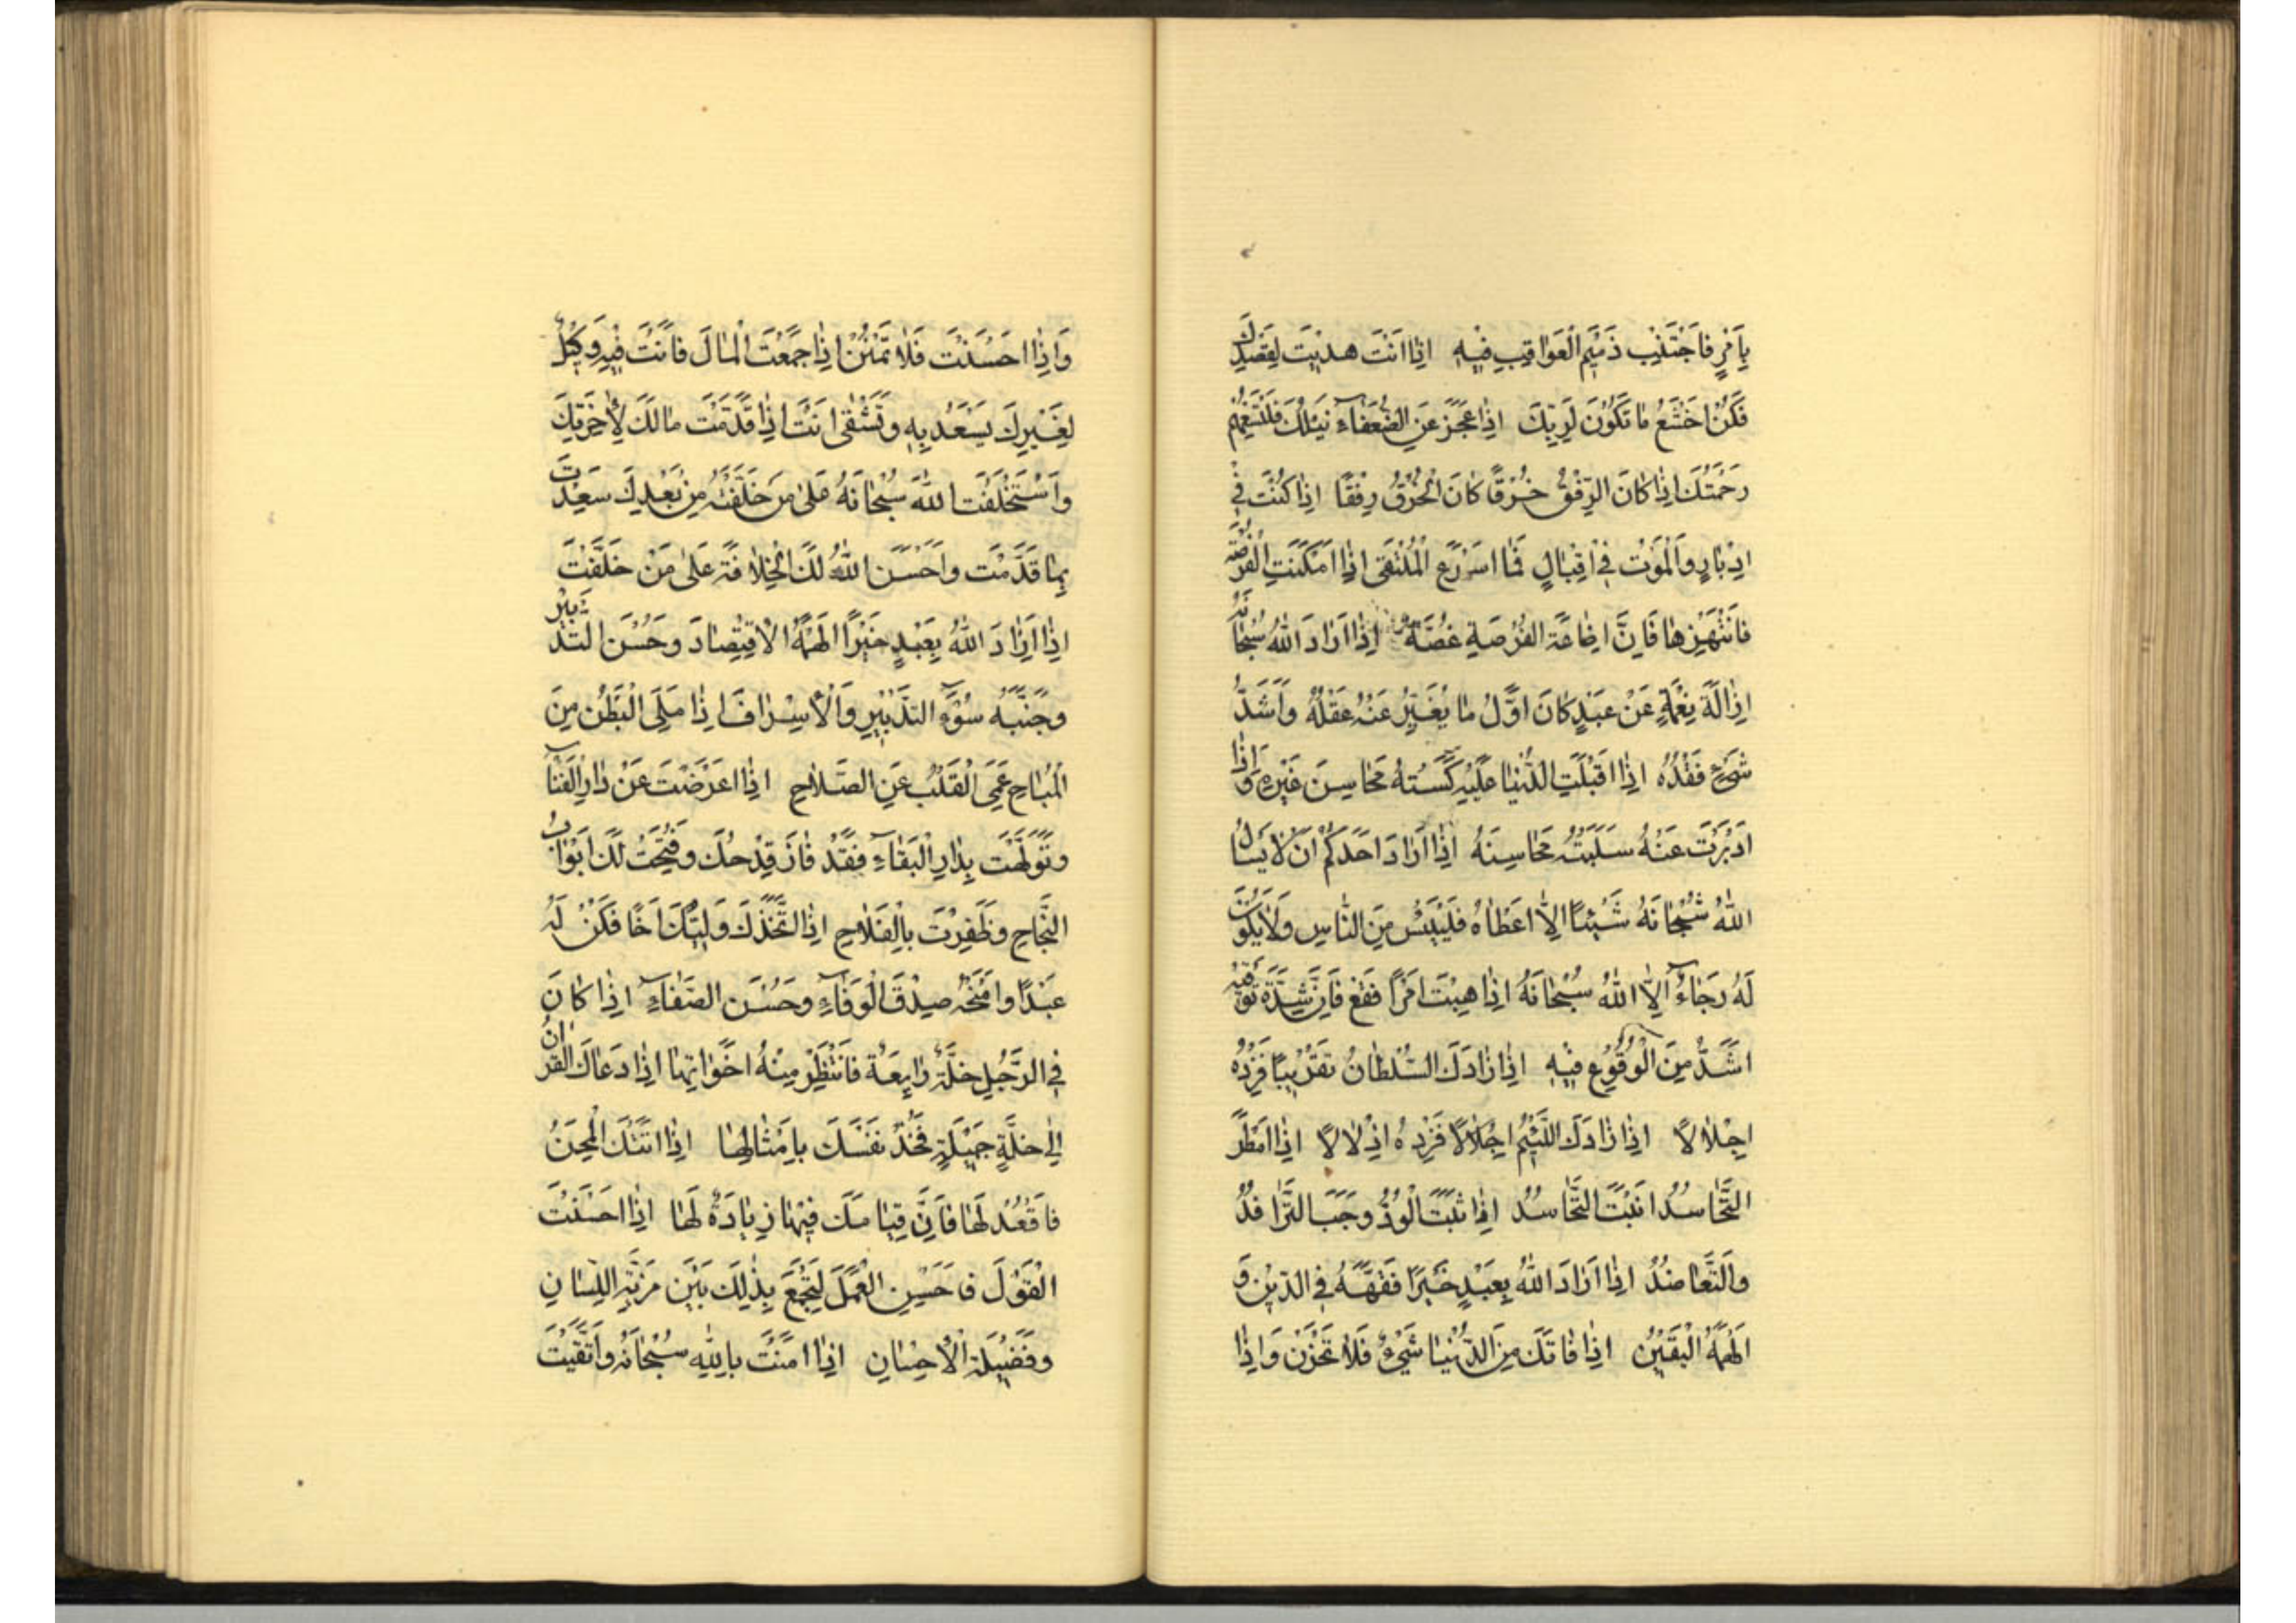 بِاَمْرٍ فَاجْتَنِبْ ذَمِيْمَ الْعَوَاقِبِ فِيْهِ اِذَا اَنْتَ هُدِيْتَ لِقَصْدِكَ
فَكُنْ اَخْشَعَ مَا تَكُوْنُ لِرَبِّكَ اِذَا عَجَزَ عَنِ الضُّعَفَاءِ نَيْلُكَ فَلْتَسَعْهُمْ
رَحْمَتُكَ اِذَا كَانَ الرِّفْقُ خُرْقًا كَانَ الْخُرْقُ رِفْقًا اِذَا كُنْتَ فِي
اِدْبَارٍ وَالْمَوْتُ فِي اِقْبَالٍ فَمَا اَسْرَعَ الْمُلْتَقَى اِذَا اَمْكَنَتِ الْفُرْصَةُ
فَانْتَهِزْهَا فَاِنَّ اِضَاعَةَ الْفُرْصَةِ غُصَّةٌ اِذَا اَرَادَ اللهُ سُبْحَانَهُ
اِزَالَةَ نِعْمَةٍ عَنْ عَبْدٍ كَانَ اَوَّلُ مَا يُغَيِّرُ عَنْهُ عَقْلَهُ وَاَشَدُّ
شَيْءٍ فَقْدُهُ اِذَا اَقْبَلَتِ الدُّنْيَا عَلَيْهِ كَسَتْهُ مَحَاسِنَ غَيْرِهِ وَاِذَا
اَدْبَرَتْ عَنْهُ سَلَبَتْهُ مَحَاسِنَهُ اِذَا اَرَادَ اَحَدُكُمْ اَنْ لَا يَسْاَلَ
اللهَ سُبْحَانَهُ شَيْئًا اِلَّا اَعْطَاهُ فَلْيَيْئَسْ مِنَ النَّاسِ وَلَا يَكُوْنُ
لَهُ رَجَاءٌ اِلَّا اللهُ سُبْحَانَهُ اِذَا هِبْتَ اَمْرًا فَقَعْ فَاِنَّ شِدَّةَ تَوَقِّيْهِ
اَشَدُّ مِنَ الْوُقُوْعِ فِيْهِ اِذَا زَادَكَ السُّلْطَانُ تَقْرِيْبًا فَزِدْهُ
اِجْلَالًا اِذَا زَادَكَ اللَّئِيْمُ اِجْلَالًا فَزِدْهُ اِذْلَالًا اِذَا اَمْطَرَ
التَّحَاسُدُ اَنْبَتَ التَّحَاسُدُ اِذَا ثَبَتَ الْوُدُّ وَجَبَ التَّرَافُدُ
وَالتَّعَاضُدُ اِذَا اَرَادَ اللهُ بِعَبْدٍ خَيْرًا فَقَّهَهُ فِي الدِّيْنِ وَ
اَلْهَمَهُ الْيَقِيْنَ اِذَا فَاتَكَ مِنَ الدُّنْيَا شَيْءٌ فَلَا تَحْزَنْ وَاِذَا
وَاِذَا اَحْسَنْتَ فَلَا تَمْنُنْ اِذَا جَمَعْتَ الْمَالَ فَاَنْتَ فِيْهِ وَكِيْلٌ
لِغَيْرِكَ يَسْعَدُ بِهِ وَتَشْقَى اَنْتَ اِذَا قَدَّمْتَ مَالَكَ لِاٰخِرَتِكَ
وَاسْتَخْلَفْتَ اللهَ سُبْحَانَهُ عَلَى مَنْ خَلَّفْتَهُ مِنْ بَعْدِكَ سَعِدْتَ
بِمَا قَدَّمْتَ وَاَحْسَنَ اللهُ لَكَ الْخِلَافَةَ عَلَى مَنْ خَلَّفْتَ
اِذَا اَرَادَ اللهُ بِعَبْدٍ خَيْرًا اَلْهَمَهُ الْاِقْتِصَادَ وَحُسْنَ التَّدْبِيْرِ
وَجَنَّبَهُ سُوْءَ التَّدْبِيْرِ وَالْاِسْرَافَ اِذَا مُلِئَ الْبَطْنُ مِنَ
الْمُبَاحِ عَمِيَ الْقَلْبُ عَنِ الصَّلَاحِ اِذَا اَعْرَضْتَ عَنْ دَارِ الْفَنَاءِ
وَتَوَلَّهْتَ بِدَارِ الْبَقَاءِ فَقَدْ فَازَ قِدْحُكَ وَفُتِحَتْ لَكَ اَبْوَابُ
النَّجَاحِ وَظَفِرْتَ بِالْفَلَاحِ اِذَا اتَّخَذَكَ وَلِيُّكَ اَخًا فَكُنْ لَهُ
عَبْدًا وَامْنَحْهُ صِدْقَ الْوَفَاءِ وَحُسْنَ الصَّفَاءِ اِذَا كَانَ
فِي الرَّجُلِ خَلَّةٌ رَائِعَةٌ فَانْتَظِرْ مِنْهُ اَخَوَاتِهَا اِذَا دَعَاكَ الْقُرْاٰنُ
اِلَى خَلَّةٍ جَمِيْلَةٍ فَخُذْ نَفْسَكَ بِاَمْثَالِهَا اِذَا اَتَتْكَ الْمِحَنُ
فَاقْعُدْ لَهَا فَاِنَّ قِيَامَكَ فِيْهَا زِيَادَةٌ لَهَا اِذَا اَحْسَنْتَ
الْقَوْلَ فَاَحْسِنِ الْعَمَلَ لِتَجْمَعَ بِذٰلِكَ بَيْنَ مَزِيَّةِ اللِّسَانِ
وَفَضِيْلَةِ الْاِحْسَانِ اِذَا اٰمَنْتَ بِاللهِ سُبْحَانَهُ وَاتَّقَيْتَ